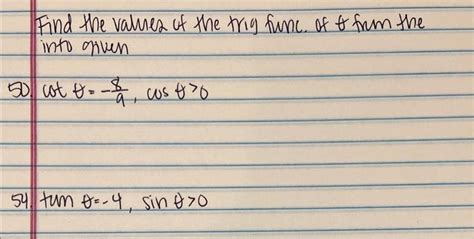 Find the values of the trig func. of θ from the
info given
50. cot θ = -8/9, cos θ>0
54. tan θ=-4, sin θ>0